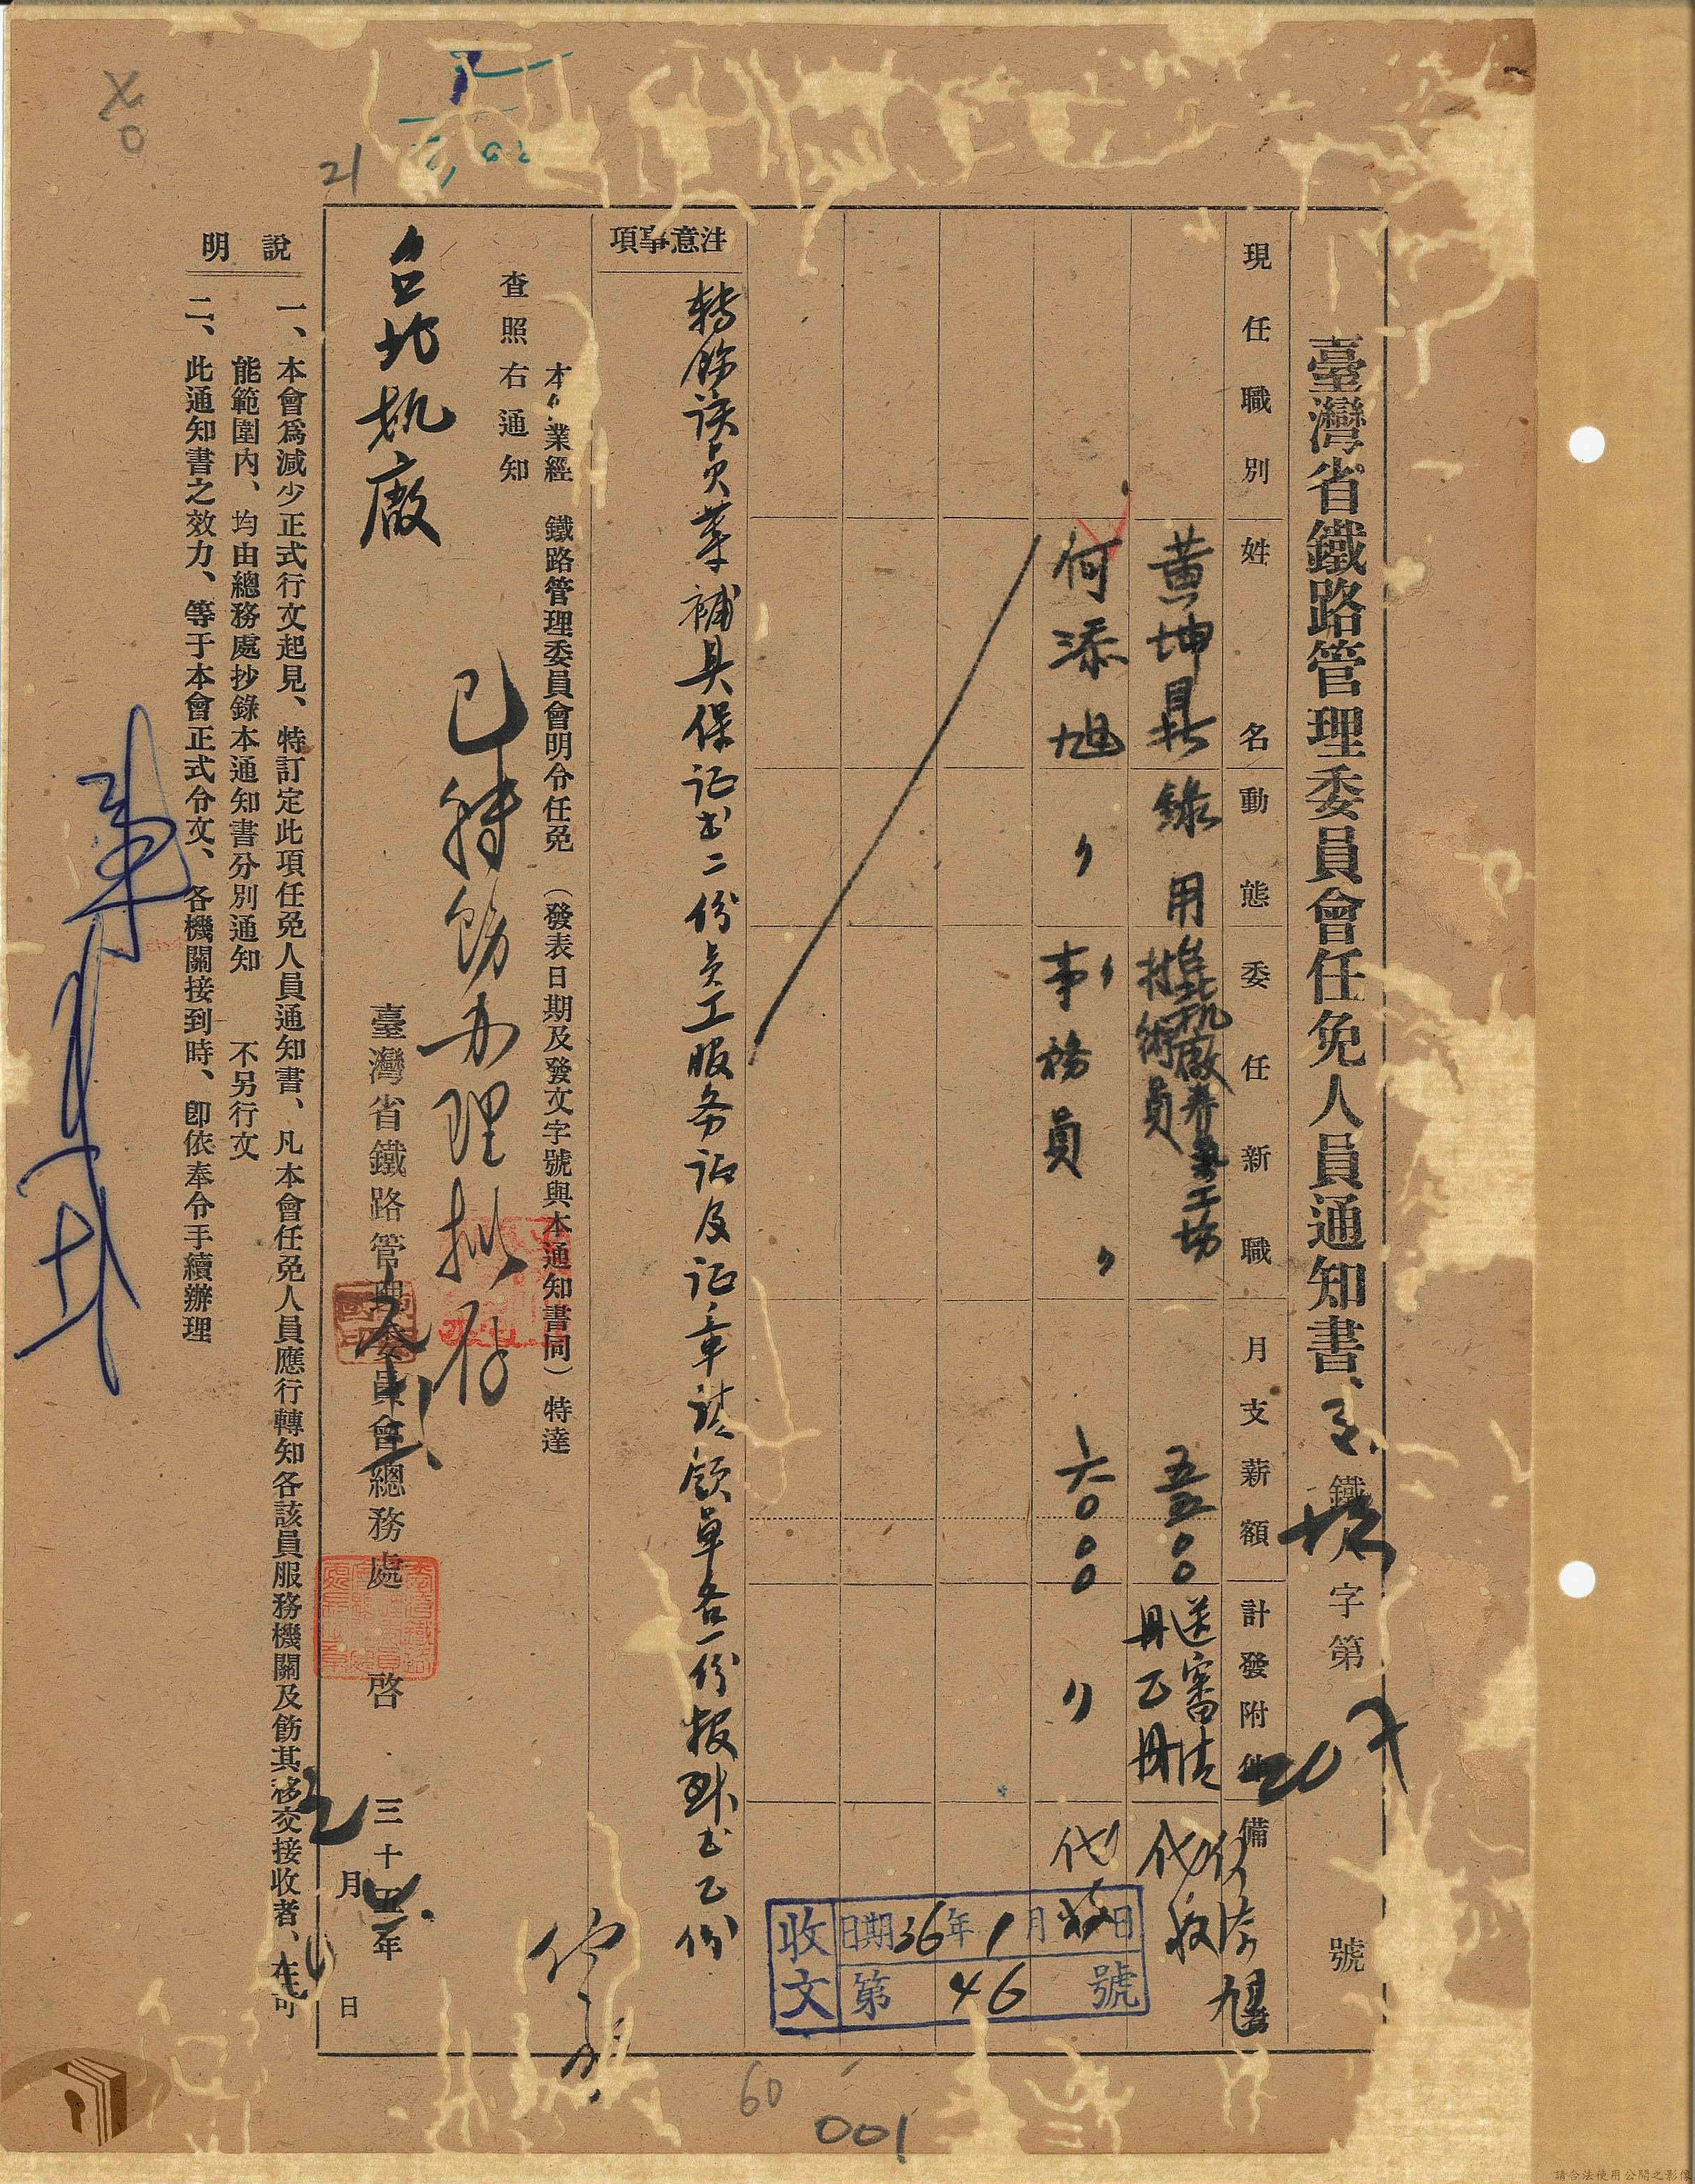 臺灣省鐵路管理委員會任免人員通知書
鐵人字第207號
現任職別
姓名
動態
委任新職
月支薪額
計發附件
備
黃坤
錄用
台北机廠
工場
技術員
五五〇〇
送審清冊乙冊
代
何添旭
〃
〃
事務員
〃
六〇〇〇
〃
代
注意事項
轉飭該員等補具保证书二份員工服务证及证章請領單各一份報到书乙份
本
業經
鐵路管理委員會明令任免
(發表日期及發文字號與本通知書同)特達
查照右通知
已轉飭办理拟存
台北机廠
臺灣省鐵路管理委員會總務處
啓
三十
年
月
日
說明
一、本會爲減少正式行文起見、特訂定此項任免人員通知書、凡本會任免人員應行轉知各該員服務機關及飭其移交接收者、在可
能範圍內、均由總務處抄錄本通知書分別通知
不另行文
二、此通知書之效力、等于本會正式令文、各機關接到時、卽依奉令手續辦理
收文
日期36年1月
日
第46號
21
60
001
請合法使用公開之影像